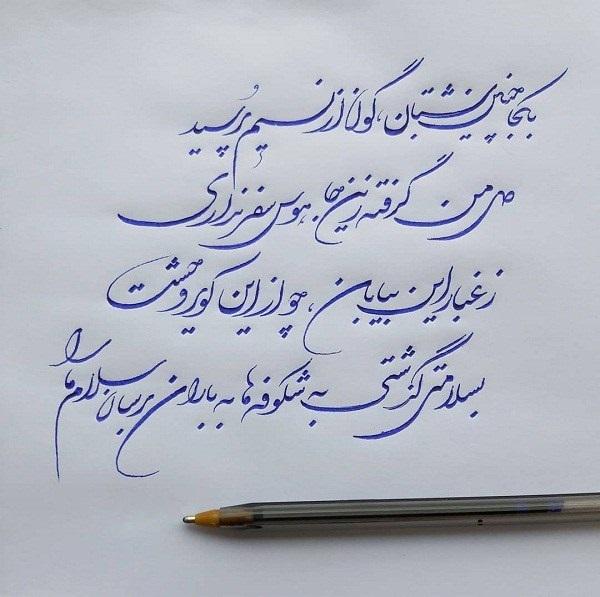 بکجا چنین شتابان، گون از نسیم پُرسید
دل من گرفته زین جا، هوس سفر نداری
ز غبار این بیابان، چو از این کویر وحشت
بسلامتی گذشتی به شکوفه‌ها به باران برسان سلام ما را